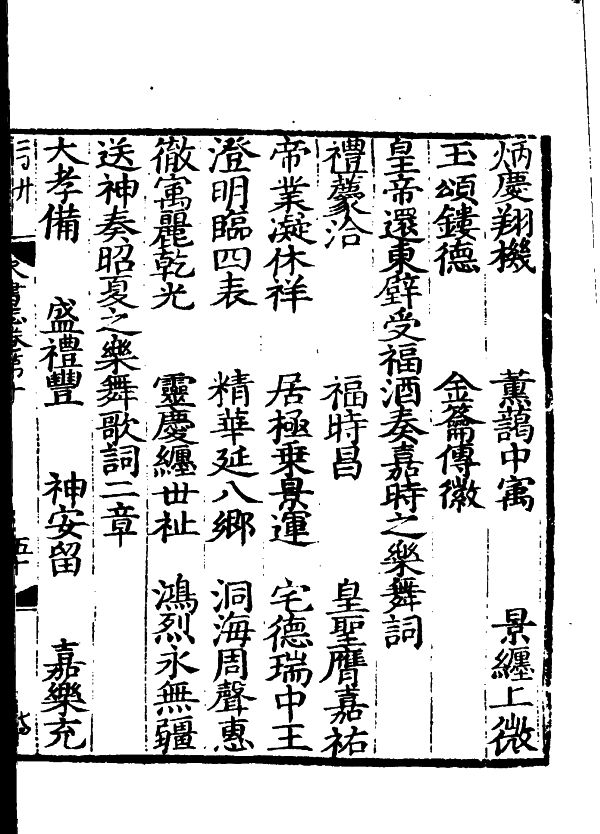 炳慶翔機　薰藹中寓　景纏上微
玉頌鏤德　金籥傳徽
皇帝還東壁受福酒奏嘉時之樂舞詞
禮薦洽　福時昌　皇聖膺嘉祐
帝業凝休祥　居極乘景運　宅德瑞中王
澄明臨四表　精華延八鄉　洞海周聲惠
徹寓麗乾光　靈慶纏世祉　鴻烈永無疆
送神奏昭夏之樂舞歌詞二章
大孝備　盛禮豐　神安留　嘉樂充